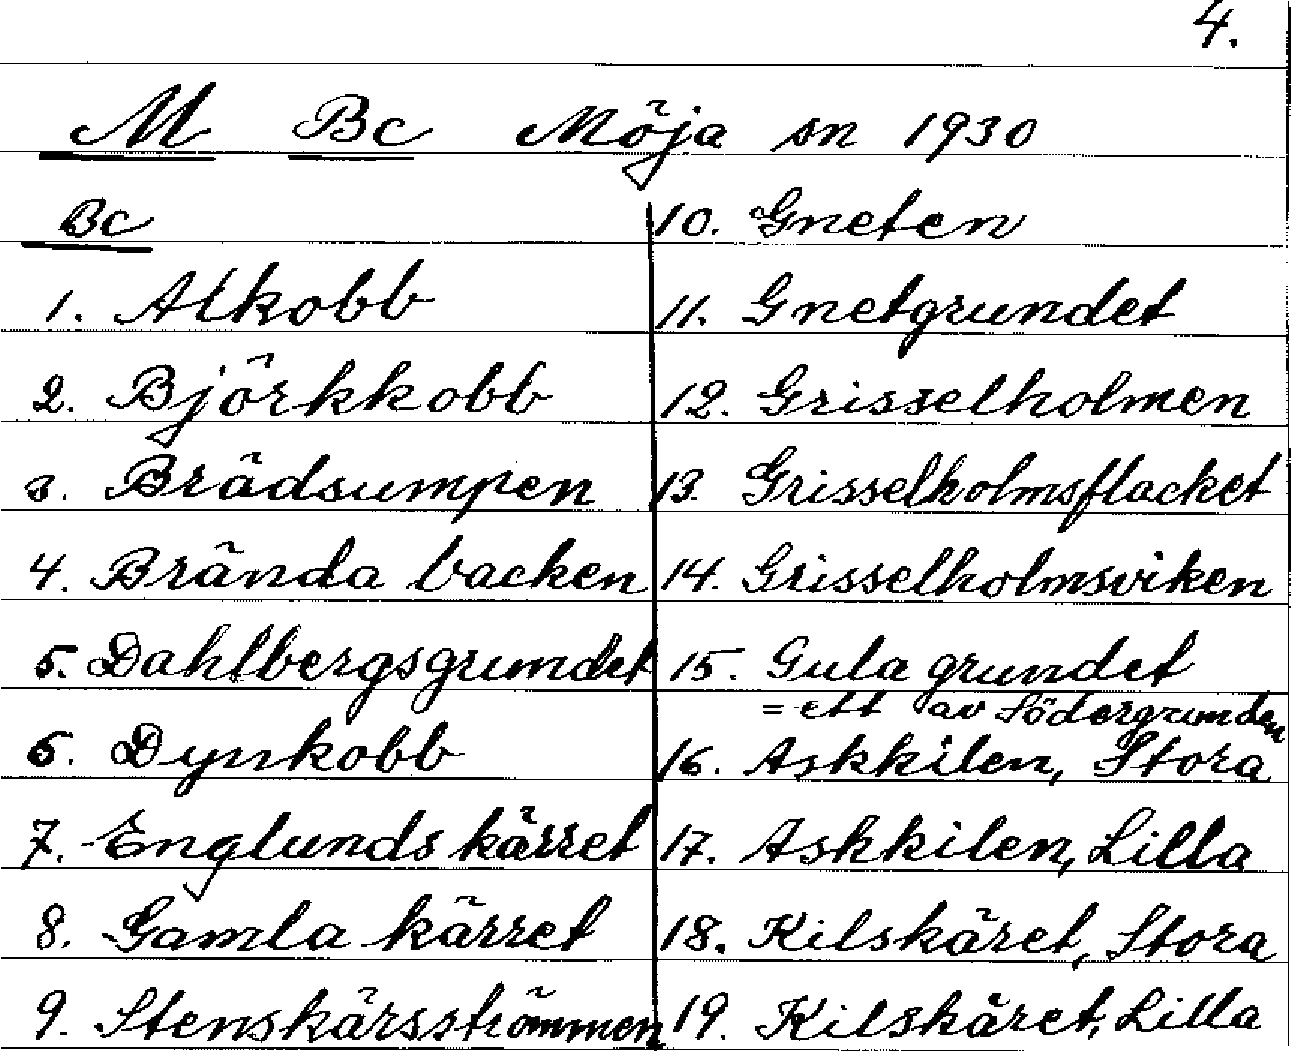 4.
M Bc Möja sn 1930
Bc
1. Alkobb
2. Björkkobb
3. Brädsumpen
4. Brända backen
5. Dahlbergsgrundet
6. Dynkobb
7. Englunds kärret
8. Gamla kärret
9. Stenskärsströmmen
10. Gneten
11. Gnetgrundet
12. Grisselholmen
13. Grisselholmsflacket
14. Grisselholmsviken
15. Gula grundet
= ett av Södergrunden
16. Askkilen, Stora
17. Askkilen, Lilla
18. Kilskäret, Stora
19. Kilskäret, Lilla